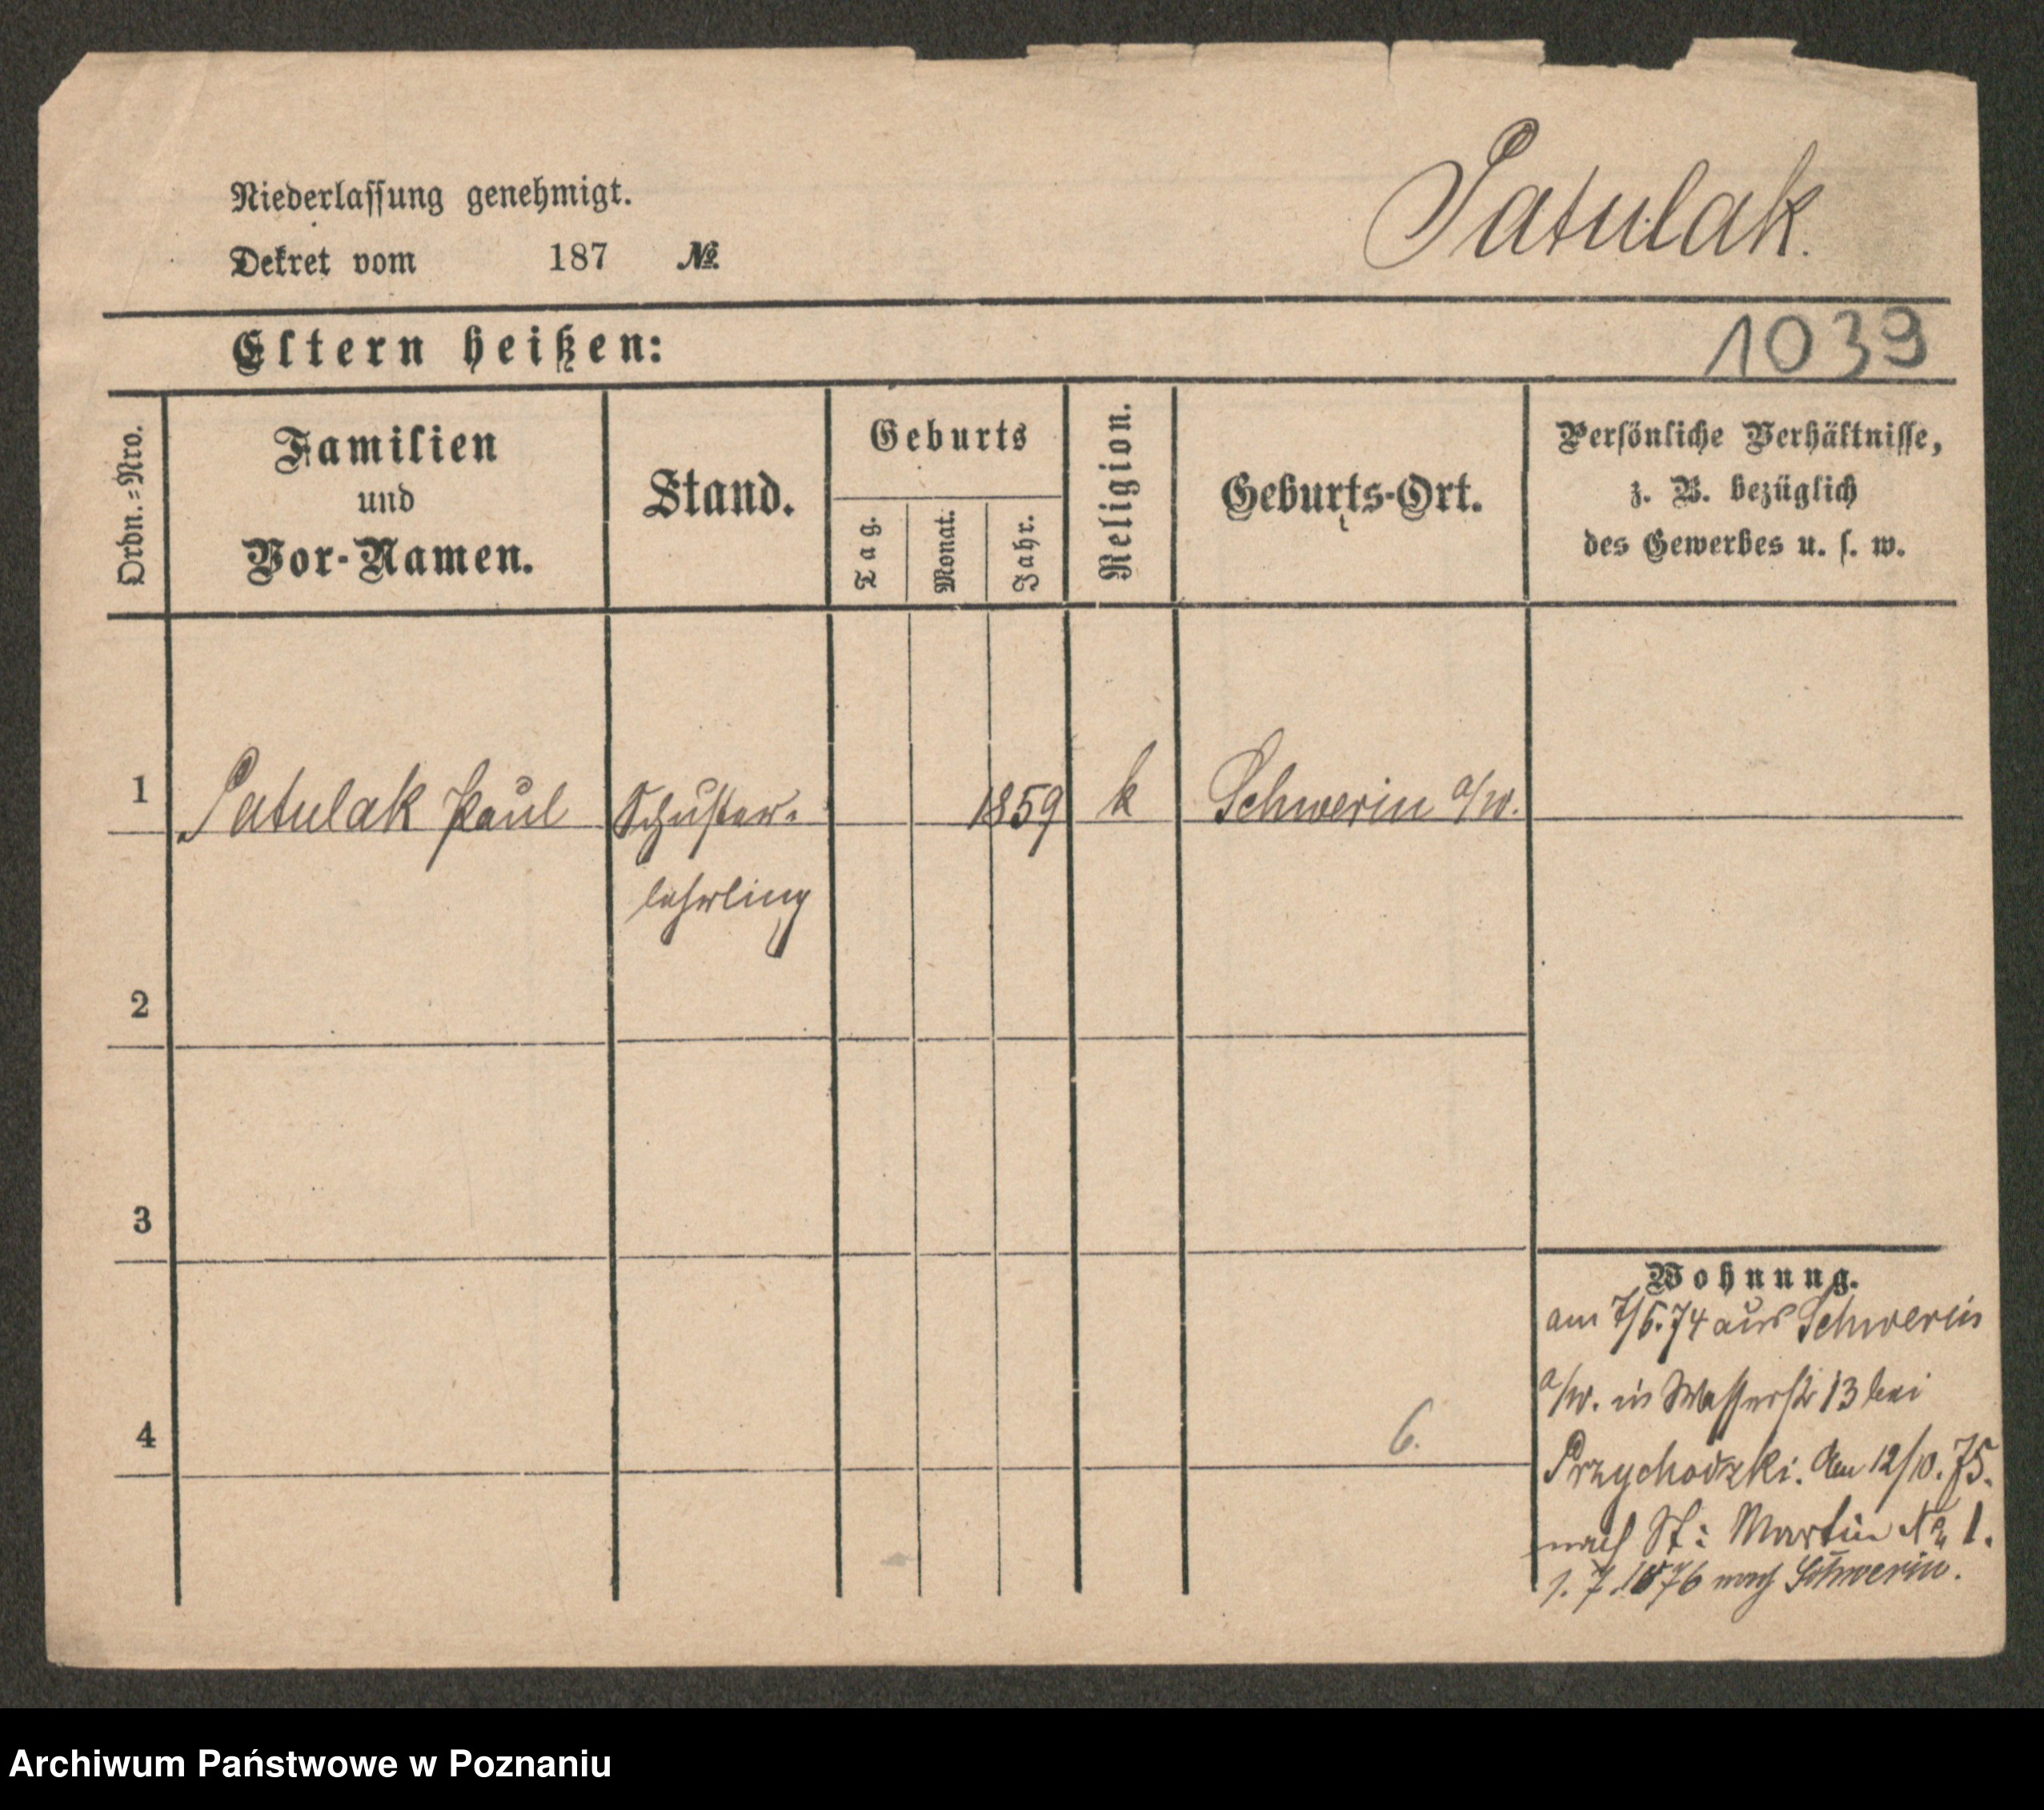 Niederlassung genehmigt.
Dekret vom 187 №
Patulak.
Eltern heißen:
1039
Ordn.=Nro.
Familien
und
Vor-Namen.
Stand.
Geburts
Tag.
Monat.
Jahr.
Religion.
Geburts-Ort.
Persönliche Verhältnisse,
z. B. bezüglich
des Gewerbes u. s. w.
1 Patulak Paul Schuster= 1859 k Schwerin a/w.
lehrling
2
3
4
6.
Wohnung.
am 7/6.74 aus Schwerin
a/w. in Wasserstr 13 bei
Przychodzki. Am 12/10.75.
nach St: Martin № 1.
1. 7 1876 nach Schwerin.
Archiwum Państwowe w Poznaniu